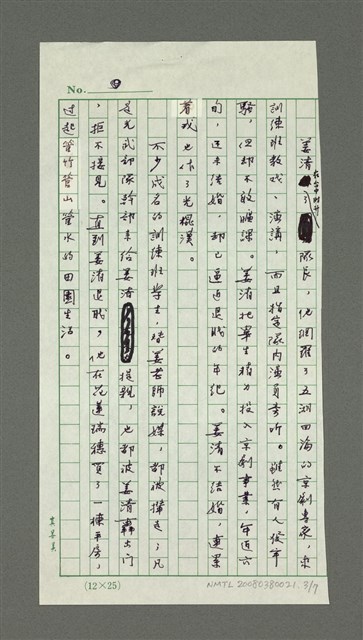 No. 四
姜清在台中時升了隊長，他網羅了五湖四海的京劇專家，來
訓練班教戲、演講，而且指定隊內演員旁聽。雖然有人發牢
騷，但卻不敢曠課。姜清把畢生精力投入京劇事業，年近六
旬，還未結婚，卻已逼近退職的年紀。姜清不結婚，連累
著我也作了光棍漢。
不少成名的訓練班學生，替姜老師說媒，都被擇走；凡
是光武部隊幹部來給姜清提親，也都被姜清轟出門
，拒不接見。直到姜清退職，他在花蓮瑞穗買了一棟平房，
過起管竹管山管水的田園生活。
(12×25)
NMTL 20080380021. 3/7